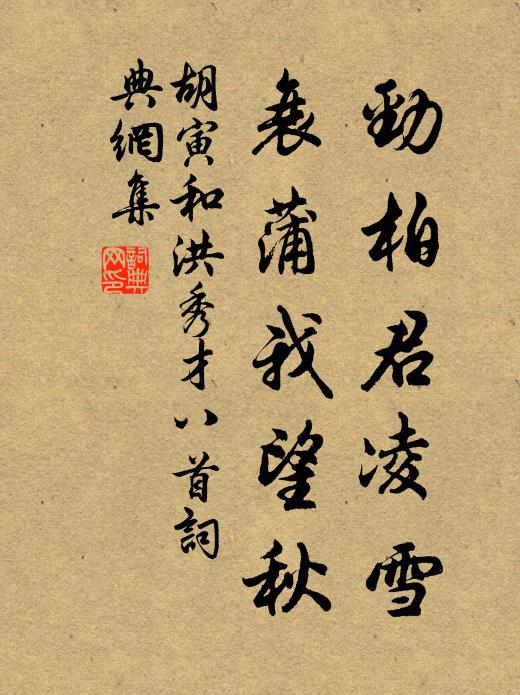 勁柏君凌雪
衰蒲我望秋
胡寅和洪秀才八首詞
典網集
詞典网印